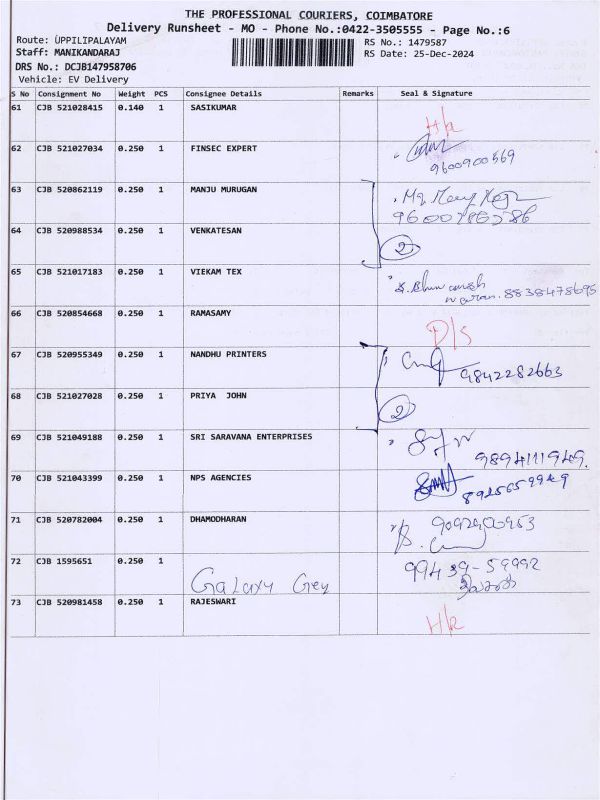 THE PROFESSIONAL COURIERS, COIMBATORE
Delivery Runsheet - MO - Phone No.:0422-3505555 - Page No.:6
Route: UPPILIPALAYAM
RS No.: 1479587
Staff: MANIKANDARAJ
RS Date: 25-Dec-2024
DRS No.: DCJB147958706
Vehicle: EV Delivery
S No Consignment No Weight PCS Consignee Details Remarks Seal & Signature
61 CJB 521028415 0.140 1 SASIKUMAR
H/R
62 CJB 521027034 0.250 1 FINSEC EXPERT
9600900569
63 CJB 520862119 0.250 1 MANJU MURUGAN
64 CJB 520988534 0.250 1 VENKATESAN
2
65 CJB 521017183 0.250 1 VIEKAM TEX
8838478695
66 CJB 520854668 0.250 1 RAMASAMY
D/S
67 CJB 520955349 0.250 1 NANDHU PRINTERS
9842282663
68 CJB 521027028 0.250 1 PRIYA JOHN
2
69 CJB 521049188 0.250 1 SRI SARAVANA ENTERPRISES
9894111949.
70 CJB 521043399 0.250 1 NPS AGENCIES
8925659949
71 CJB 520782004 0.250 1 DHAMODHARAN
72 CJB 1595651 0.250 1
Galaxy Grey
99439-59992
73 CJB 520981458 0.250 1 RAJESWARI
H/R